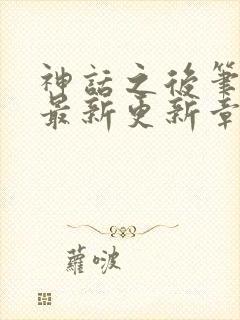 神話之後筆
最新更新章
蘿啵